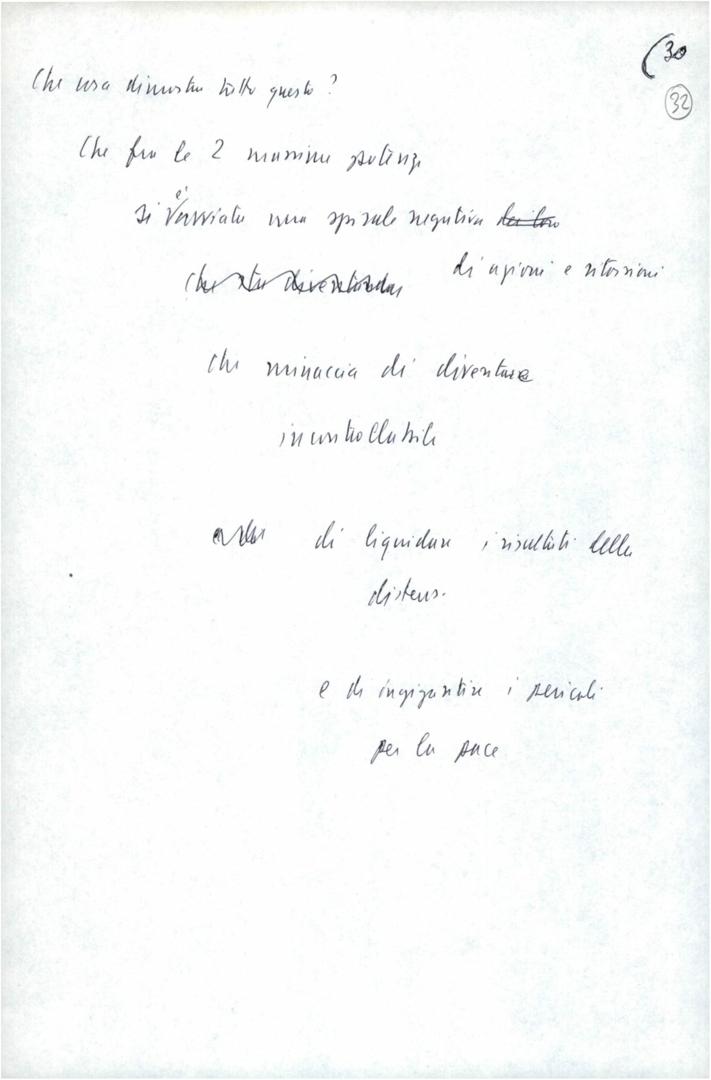 (30
32
Che cosa dimostra tutto questo?
Che fra le 2 massime potenze
si è avviata una spirale negativa
che sta diventando di azioni e ritorsioni
che minaccia di diventare
incontrollabile
di liquidare i risultati della
distens.
e di ingigantire i pericoli
per la pace